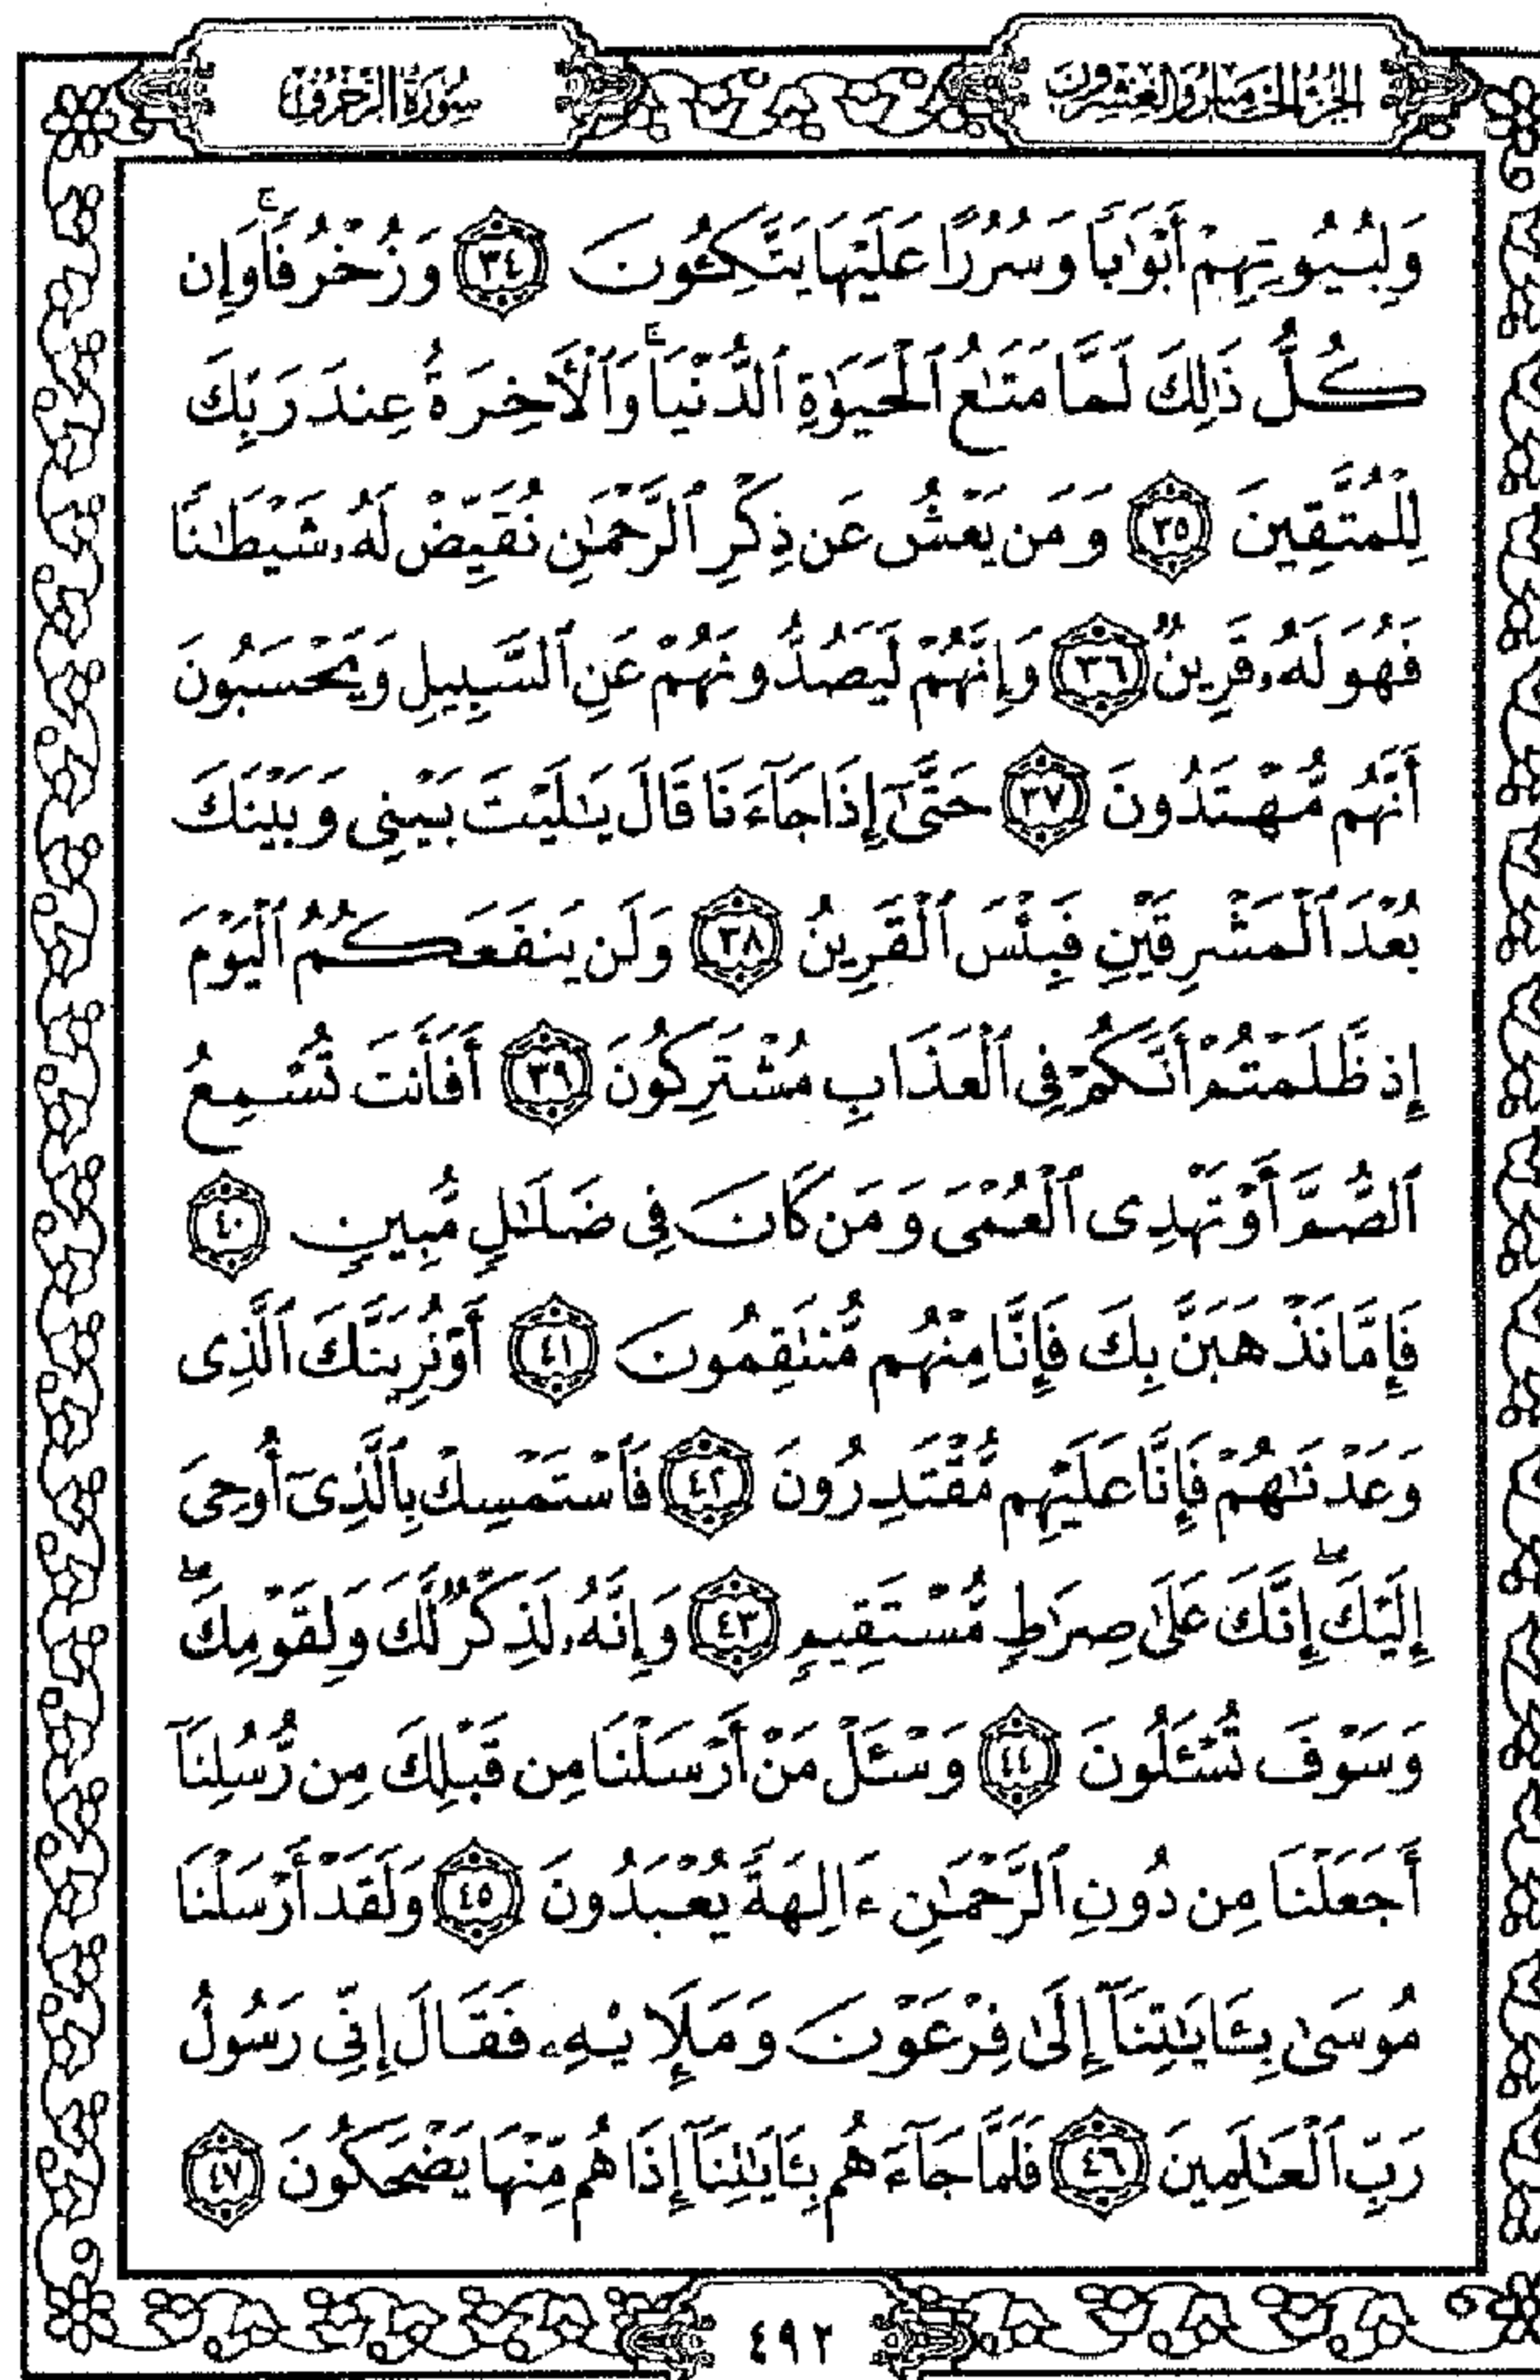 الجزء الخامس والعشرون
سورة الزخرف
وَلِبُيُوتِهِمْ أَبْوَٰبًا وَسُرُرًا عَلَيْهَا يَتَّكِـُٔونَ ﴿٣٤﴾ وَزُخْرُفًا ۚ وَإِن
كُلُّ ذَٰلِكَ لَمَّا مَتَـٰعُ ٱلْحَيَوٰةِ ٱلدُّنْيَا ۚ وَٱلْـَٔاخِرَةُ عِندَ رَبِّكَ
لِلْمُتَّقِينَ ﴿٣٥﴾ وَمَن يَعْشُ عَن ذِكْرِ ٱلرَّحْمَـٰنِ نُقَيِّضْ لَهُۥ شَيْطَـٰنًا
فَهُوَ لَهُۥ قَرِينٌ ﴿٣٦﴾ وَإِنَّهُمْ لَيَصُدُّونَهُمْ عَنِ ٱلسَّبِيلِ وَيَحْسَبُونَ
أَنَّهُم مُّهْتَدُونَ ﴿٣٧﴾ حَتَّىٰٓ إِذَا جَآءَنَا قَالَ يَـٰلَيْتَ بَيْنِى وَبَيْنَكَ
بُعْدَ ٱلْمَشْرِقَيْنِ فَبِئْسَ ٱلْقَرِينُ ﴿٣٨﴾ وَلَن يَنفَعَكُمُ ٱلْيَوْمَ
إِذ ظَّلَمْتُمْ أَنَّكُمْ فِى ٱلْعَذَابِ مُشْتَرِكُونَ ﴿٣٩﴾ أَفَأَنتَ تُسْمِعُ
ٱلصُّمَّ أَوْ تَهْدِى ٱلْعُمْىَ وَمَن كَانَ فِى ضَلَـٰلٍ مُّبِينٍ ﴿٤٠﴾
فَإِمَّا نَذْهَبَنَّ بِكَ فَإِنَّا مِنْهُم مُّنتَقِمُونَ ﴿٤١﴾ أَوْ نُرِيَنَّكَ ٱلَّذِى
وَعَدْنَـٰهُمْ فَإِنَّا عَلَيْهِم مُّقْتَدِرُونَ ﴿٤٢﴾ فَٱسْتَمْسِكْ بِٱلَّذِىٓ أُوحِىَ
إِلَيْكَ ۖ إِنَّكَ عَلَىٰ صِرَٰطٍ مُّسْتَقِيمٍ ﴿٤٣﴾ وَإِنَّهُۥ لَذِكْرٌ لَّكَ وَلِقَوْمِكَ ۖ
وَسَوْفَ تُسْـَٔلُونَ ﴿٤٤﴾ وَسْـَٔلْ مَنْ أَرْسَلْنَا مِن قَبْلِكَ مِن رُّسُلِنَآ
أَجَعَلْنَا مِن دُونِ ٱلرَّحْمَـٰنِ ءَالِهَةً يُعْبَدُونَ ﴿٤٥﴾ وَلَقَدْ أَرْسَلْنَا
مُوسَىٰ بِـَٔايَـٰتِنَآ إِلَىٰ فِرْعَوْنَ وَمَلَإِيْهِۦ فَقَالَ إِنِّى رَسُولُ
رَبِّ ٱلْعَـٰلَمِينَ ﴿٤٦﴾ فَلَمَّا جَآءَهُم بِـَٔايَـٰتِنَآ إِذَا هُم مِّنْهَا يَضْحَكُونَ ﴿٤٧﴾
٤٩٢